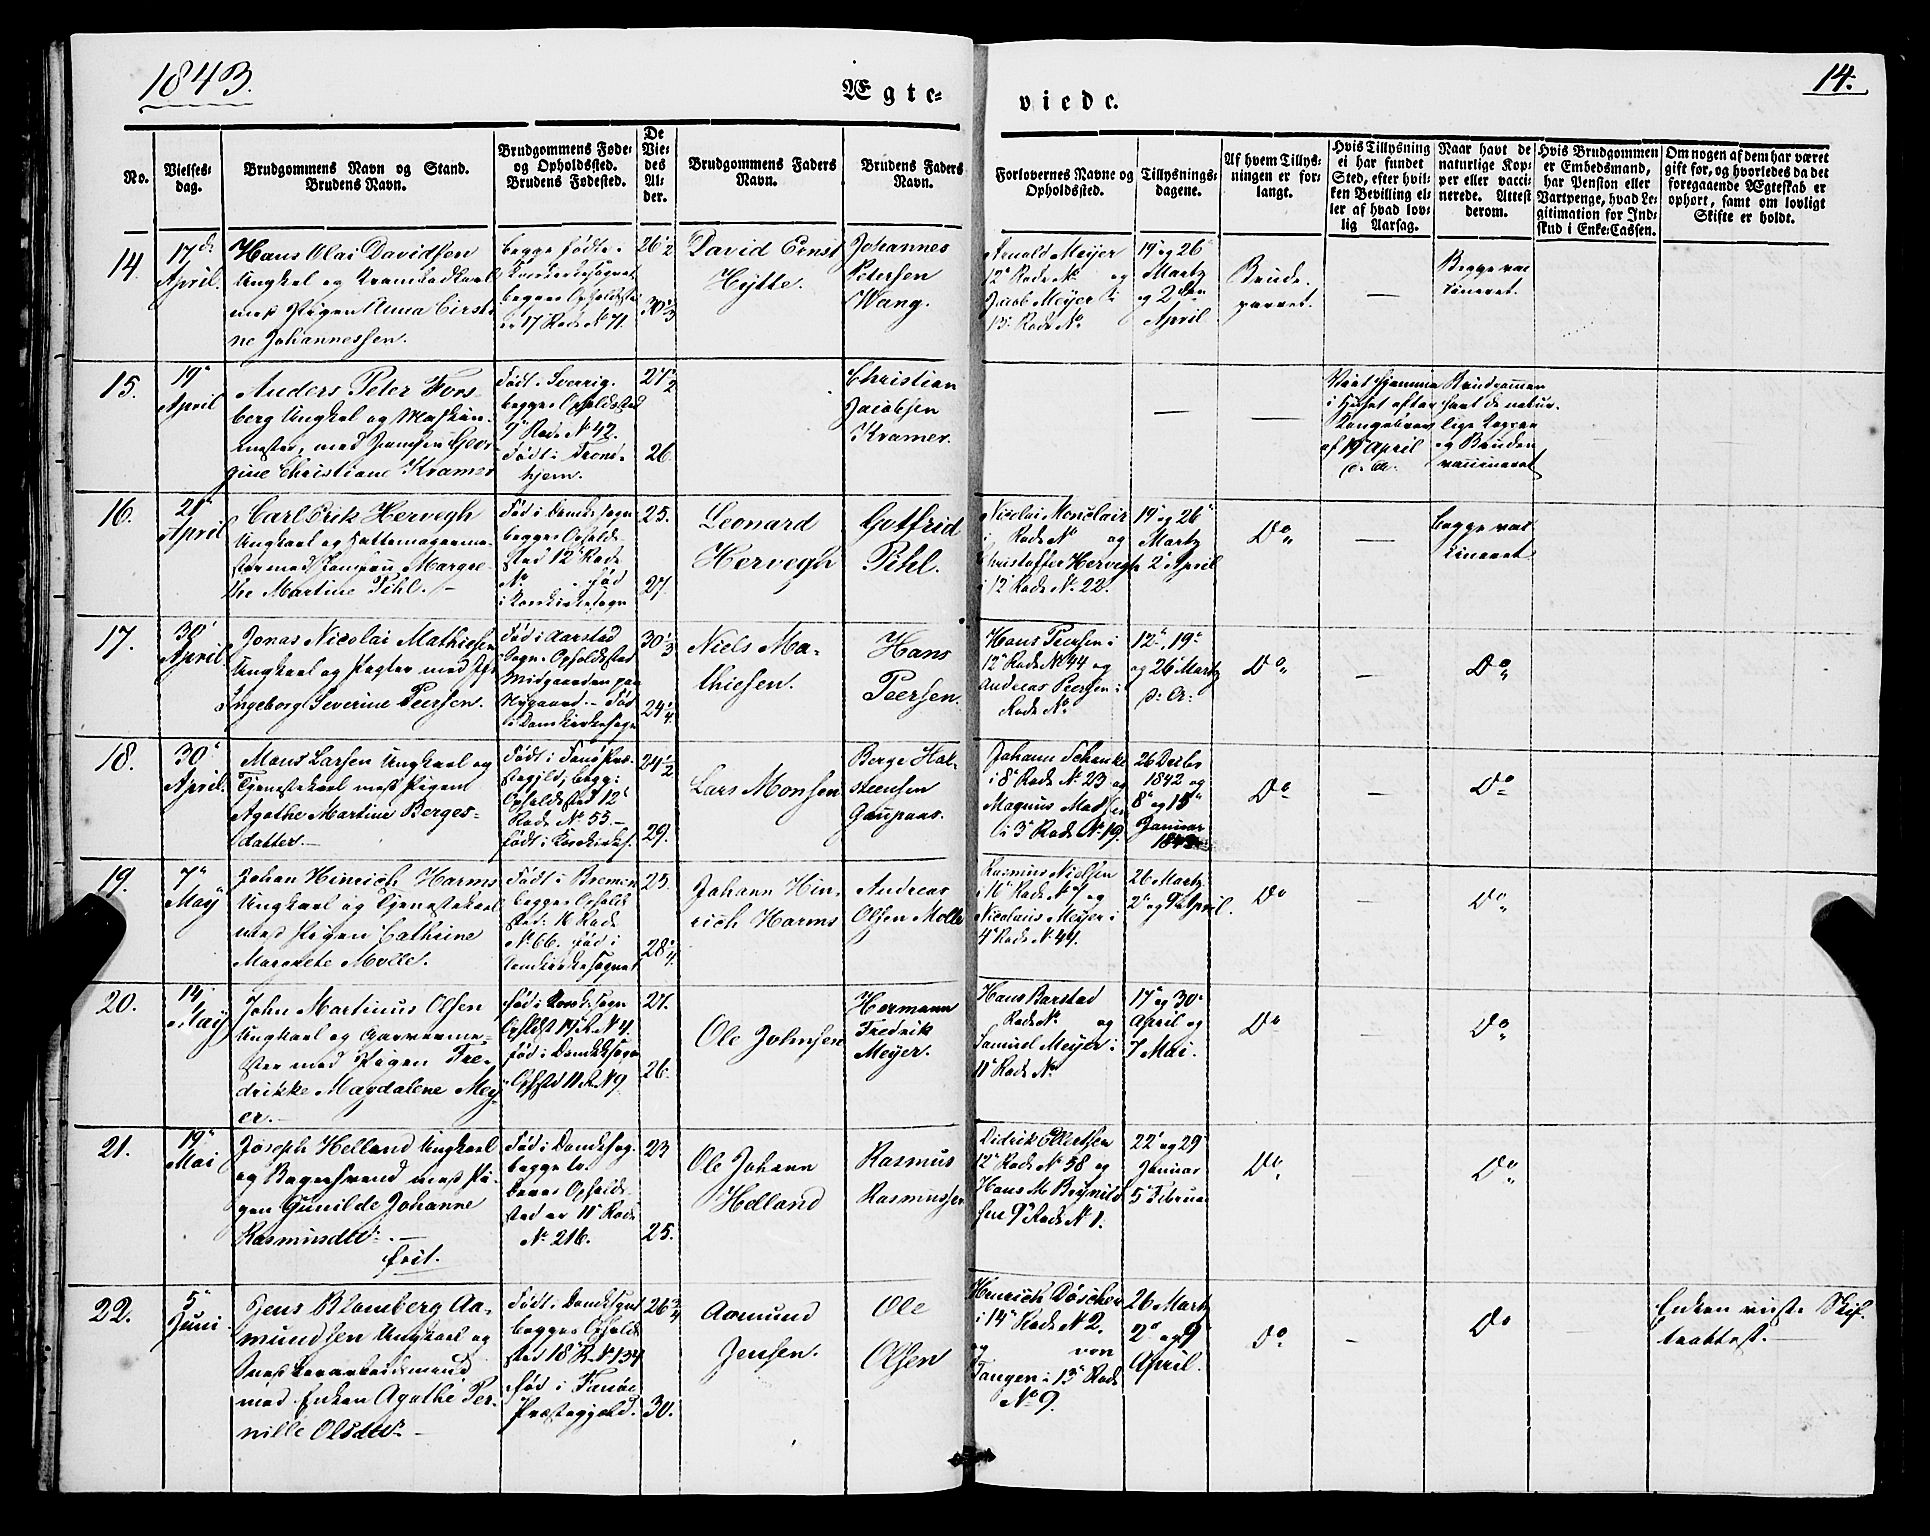 1843.
14.
Ægte-
viede.
No.
Vielses-
dag.
Brudgommens Navn og Stand.
Brudens Navn.
Brudgommens Føde-
og Opholdssted.
Brudens Fødested.
De
Vie-
des
Al-
der.
Brudgommens Faders
Navn.
Brudens Faders
Navn.
Forlovernes Navne og
Opholdssted.
Tillysnings-
dagene.
Af hvem Tillys-
ningen er for-
langt.
Hvis Tillysning
ei har fundet
Sted, efter hvil-
ken Bevilling el-
ler af hvad lov-
lig Aarsag.
Naar havt de
naturlige Kop-
per eller vacci-
nerede. Attest
derom.
Hvis Brudgommen
er Embedsmand,
har Pension eller
Vartpenge, hvad Le-
gitimation for Ind-
skud i Enke-Cassen.
Om nogen af dem har været
gift før, og hvorledes da det
foregaaende Ægteskab er
ophørt, samt om lovligt
Skifte er holdt.
14.
17de
April.
Hans Olai Davidsen
Ungkarl og
med Pigen Anna Cirsti-
ne Johannessen.
begge fødte i
Korskirkesognet
begges Opholdssted
er 17 Rode No 71.
26 1/2
30 1/3
David Ernst
Hytte.
Johannes
Petersen
Wang.
Arnold Meyer
12" Rode No og
Jacob Meyer i
13" Rode No
19" og 26"
Martz
og 2den
April.
Brude-
parret.
—
Begge vac-
cineret.
15.
19"
April
Anders Peter Fors-
berg Ungkarl og Maskin-
mester, med Jomfru Geor-
gine Christiane Kramer
Født i Sverrig.
begges Opholdssted
9" Rode No 42.
Født i Trond-
hjem.
27 1/2
26.
Christian
Jacobsen
Kramer.
—
—
Viet hjemme
i Huset efter
Kongebrev
af 19 April
d. A.
Brudgommen
havt de natur-
lige Kopper
og Bruden
vaccineret
16.
21"
April
Carl Erik Hervegh
Ungkarl og Hattemagerme-
ster med Jomfru Margre-
the Martine Pihl. —
Fød i Domk: Sogn
begges Opholds-
sted 12" Rode
No . Fød
i Korskirkesogn
25.
27.
Leonard
Hervegh
Gotfrid
Pihl.
Nicolai Monclair
i Rode No og
Christoffer Hervegh
i 12" Rode No. 22.
19" og 26"
Martz
2" April
Do "
—
begge vac-
cineret
17.
30'
April.
Jonas Nicolai Mathiesen
Ungkarl og med Pig:
Ingeborg Severine Peersen.
Fød i Aarstad
Sogn. Opholdssted
Midgaarden paa
Nygaard. – Fød
i Domkirkesogn
30 1/3
24 1/4.
Niels Ma-
thiesen.
Hans
Peersen.
Hans Peersen i
12" Rode No 44 og
Andreas Peersen i
Rode No
12", 19"
og 26 Martz
d: A:
Do "
—
Do "
18.
30"
April.
Mons Larsen Ungkarl og
Tjenestekarl med Pigen
Agathe Martine Berges-
datter. —
Født i Fanø Præ-
stegjeld, begg:
Opholdssted 12"
Rode No 55 –
født i Korskirkes.
24 1/2
29.
Lars Monsen
Berge Hal-
steensen
Gaupaas.
Johann Schenke
i 8" Rode No 23 og
Magnus Madsen
i 3" Rode No 19.
26 Decbr
1842 og
8" og 15"
Januar
1843
Do
—
Do
19.
7"
May
Johan Hinrich Harms
Ungkarl og Tjenestekarl
med Pigen Cathrine
Margrete Molle.
Født i Bremen
begges Opholds
sted: 16 Rode
No 66. Fød i
Domkirkesognet
25.
28 1/4
Johann Hin-
rich Harms
Andreas
Olsen Molle
Rasmus Nielsen
i 16" Rode No 7 og
Nicolaus Meyer i
4" Rode No 44.
26 Martz
2" og 9" April.
Do
—
Do "
20.
14"
May
John Martinus Olsen
Ungkarl og Garverme-
ster med Pigen Fre-
drikke Magdalene Mey-
er. —
Fød i Korsk: Sogn
Opholdst 19" R. No 4.
fød i Domk: Sogn
Opholdsst 11 R. No 9.
27.
26.
Ole Johnsen
Hermann
Fredrik
Meyer.
Hans Barstad
Rode No og
Samuel Meyer i
11" Rode No
17" og 30"
April og
7 Mai.
Do
—
Do "
21.
19"
Mai
Joseph Helland Ungkarl
og Bagersvend med Pi-
gen Gunilde Johanne
Rasmusdtr. —
frit.
Fød i Domk: Sog.
begge to.
deres Opholds-
sted er 11" Rode
No 216.
23
25.
Ole Johann
Helland
Rasmus
Rasmussen
Didrik Ellertsen
12" Rode No 58 og
Hans M. Brynild-
sen 9" Rode No 1.
22" og 29"
Januar
5" Februar
Do "
Do "
22.
5"
Juni
Jens Blomberg Aa-
mundsen Ungkarl og
med Enken Agathe Per-
nille Olsdtr. —
Født i Domk: Sognet
begges Opholds
sted 18" R. No 134
Fød i Fanøe
Præstegjeld.
26 3/4
30.
Aamund
Jensen.
Ole
Olsen
Henrich Döscher
i 14" Rode No 2.
og von
Tangen i 13" Rode
No 9.
26 Martz
2" og 9"
April.
Do
—
Do
—
Enken viiste Skif-
teattest. —